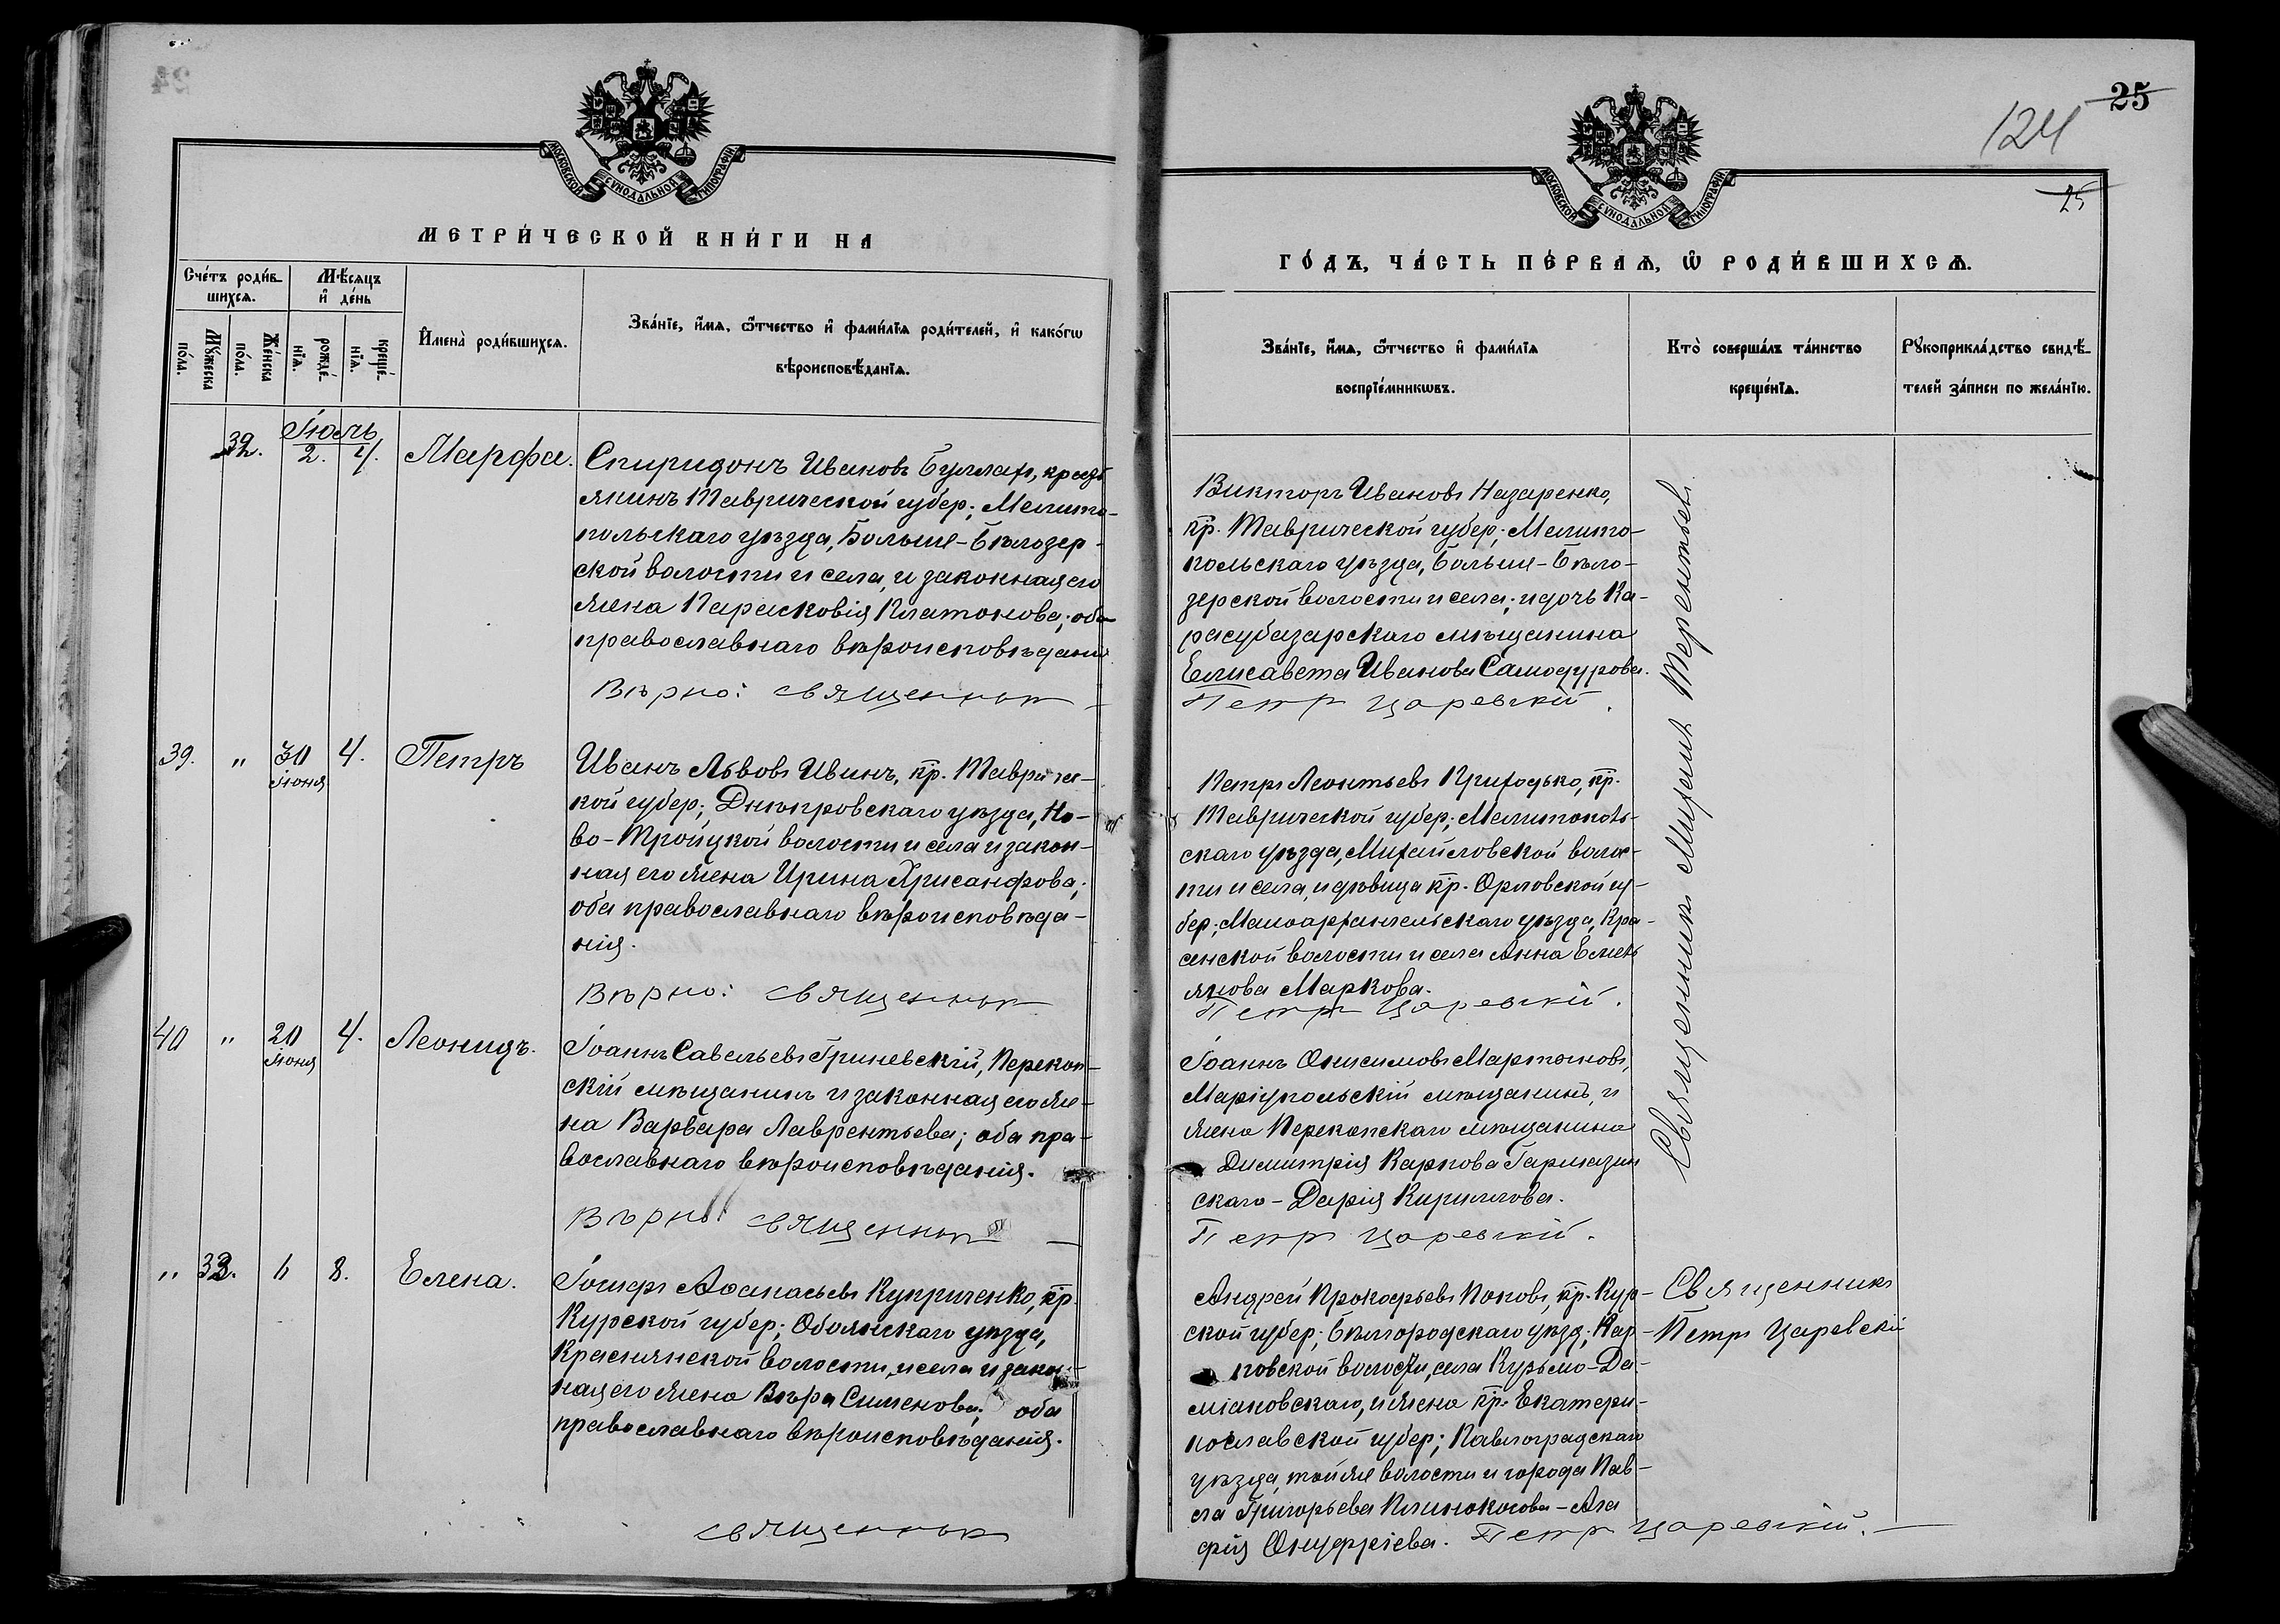 24
МОСКОВСКОЙ СУНОДАЛЬНОЙ ТИПОГРАФІИ
МЕТРИ́ЧЕСКОЙ КНИ́ГИ НА
Сче́тъ роди́в-
шихся.
Мѣ́сяцъ
и҆ де́нь
Мꙋ́жеска
по́ла.
Же́нска
по́ла.
рожде́-
нїѧ.
креще́-
нїѧ.
И҆мена̀ роди́вшихся.
Зва́нїе, и҆́мѧ, ѻ҆́тчество и҆ фами́лїѧ роди́телей, и҆ како́гѡ
вѣроисповѣ́данїѧ.
Іюль
32. 2. 4. Марфа.
Спиридонъ Ивановъ Буллах, кресть
янинъ Таврической губер; Мелито-
польскаго уѣзда, Больше-Бѣлозер-
ской волости и села, и законная его
жена Парасковія Платонова; оба
православнаго вѣроисповѣданія
Вѣрно: священникъ
39. " 30 4. Петръ
Іюня
Иванъ Львовъ Ивинъ, кр. Тавриче-
кой губер; Днѣпровскаго уѣзда, Но-
во-Тройцкой волости и села и закон-
ная его жена Ирина Хрисанфова;
оба православнаго вѣроисповѣда-
нія.
Вѣрно: священникъ
40 " 20 4. Леонидъ.
Іюня
Іоаннъ Савельевъ Гриневскій, Перекоп-
скій мѣщанинъ и законная его же-
на Варвара Лаврентьева; оба пра-
вославнаго вѣроисповѣданія.
Вѣрно: священникъ
" 33. 6 8. Елена.
Іосифъ Аѳанасьевъ Куприченко, кр.
Курской губер; Обоянскаго уѣзда,
Краснянской волости, и села и закон-
ная его жена Вѣра Сименова; оба
православнаго вѣроисповѣданія.
священникъ
25
124
25
МОСКОВСКОЙ СУНОДАЛЬНОЙ ТИПОГРАФІИ
ГО́ДЪ, ЧА́СТЬ ПЕ́РВАЯ, Ѽ РОДИ́ВШИХСѦ.
Зва́нїе, и҆́мѧ, ѻ҆́тчество и҆ фами́лїѧ
воспрїе́мникѡвъ.
Кто̀ соверша́лъ та́инство
креще́нїѧ.
Рꙋкоприкла́дство свидѣ́-
телей за́писи по жела́нїю.
Викторъ Ивановъ Назаренко,
кр. Таврической губер; Мелито-
польскаго уѣзда, Больше-Бѣло-
зерской волости и села; и дочь Ка-
расубазарскаго мѣщанина
Елисавета Иванова Самодурова.
Петр Царевскій.
Петръ Леонтьевъ Приходько, кр.
Таврической губер; Мелитополь-
скаго уѣзда, Михайловской волос-
ти и села, и дѣвица кр. Орловской гу-
бер; Малоархангельскаго уѣзда, Кра-
сенской волости и села Анна Емель
янова Маркова.
Петр Царевскій.
Іоаннъ Онисимовъ Мартыновъ,
Маріупольскій мѣщанинъ, и
жена Перекопскаго мѣщанина
Димитрія Карпова Гармазин
скаго - Дарія Кириллова.
Петр Царевскій.
Андрей Прокофьевъ Поповъ, кр. Кур-
ской губер; Бѣлгородскаго уѣзд; Кар-
повской волости, села Кузьмо-Де-
міановскаго, и жена кр. Екатери-
нославской губер; Павлоградскаго
уѣзда, той же волости и города Пав-
ла Григорьева Плинокосова - Ага
фія Онуфріева. Петр Царевскій.
Священникъ Михаилъ Терентьевъ
Священникъ
Петръ Царевскій